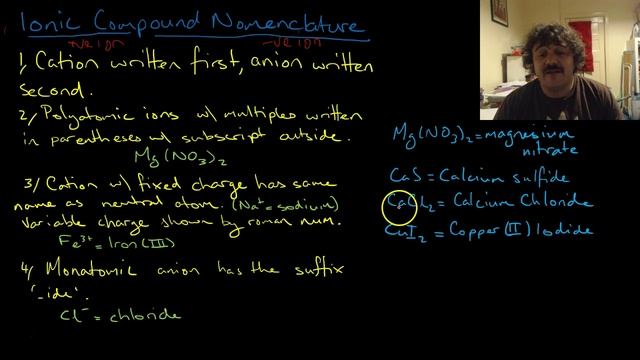 Ionic Compound Nomenclature
+ve ion
-ve ion
1, Cation written first, anion written
second.
2, Polyatomic ions w/ multiples written
in parentheses w/ subscript outside.
Mg(NO₃)₂
3, Cation w/ fixed charge has same
name as neutral atom. (Na⁺=sodium)
Variable charge shown by roman num.
Fe³⁺ = Iron (III)
4, Monatomic anion has the suffix
'-ide'.
Cl⁻ = chloride
Mg(NO₃)₂ = magnesium
nitrate
CaS = Calcium sulfide
CaCl₂ = Calcium Chloride
CuI₂ = Copper (II) Iodide